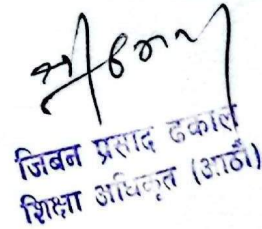 जिबन प्रसाद ढकाल
शिक्षा अधिकृत (आठौं)